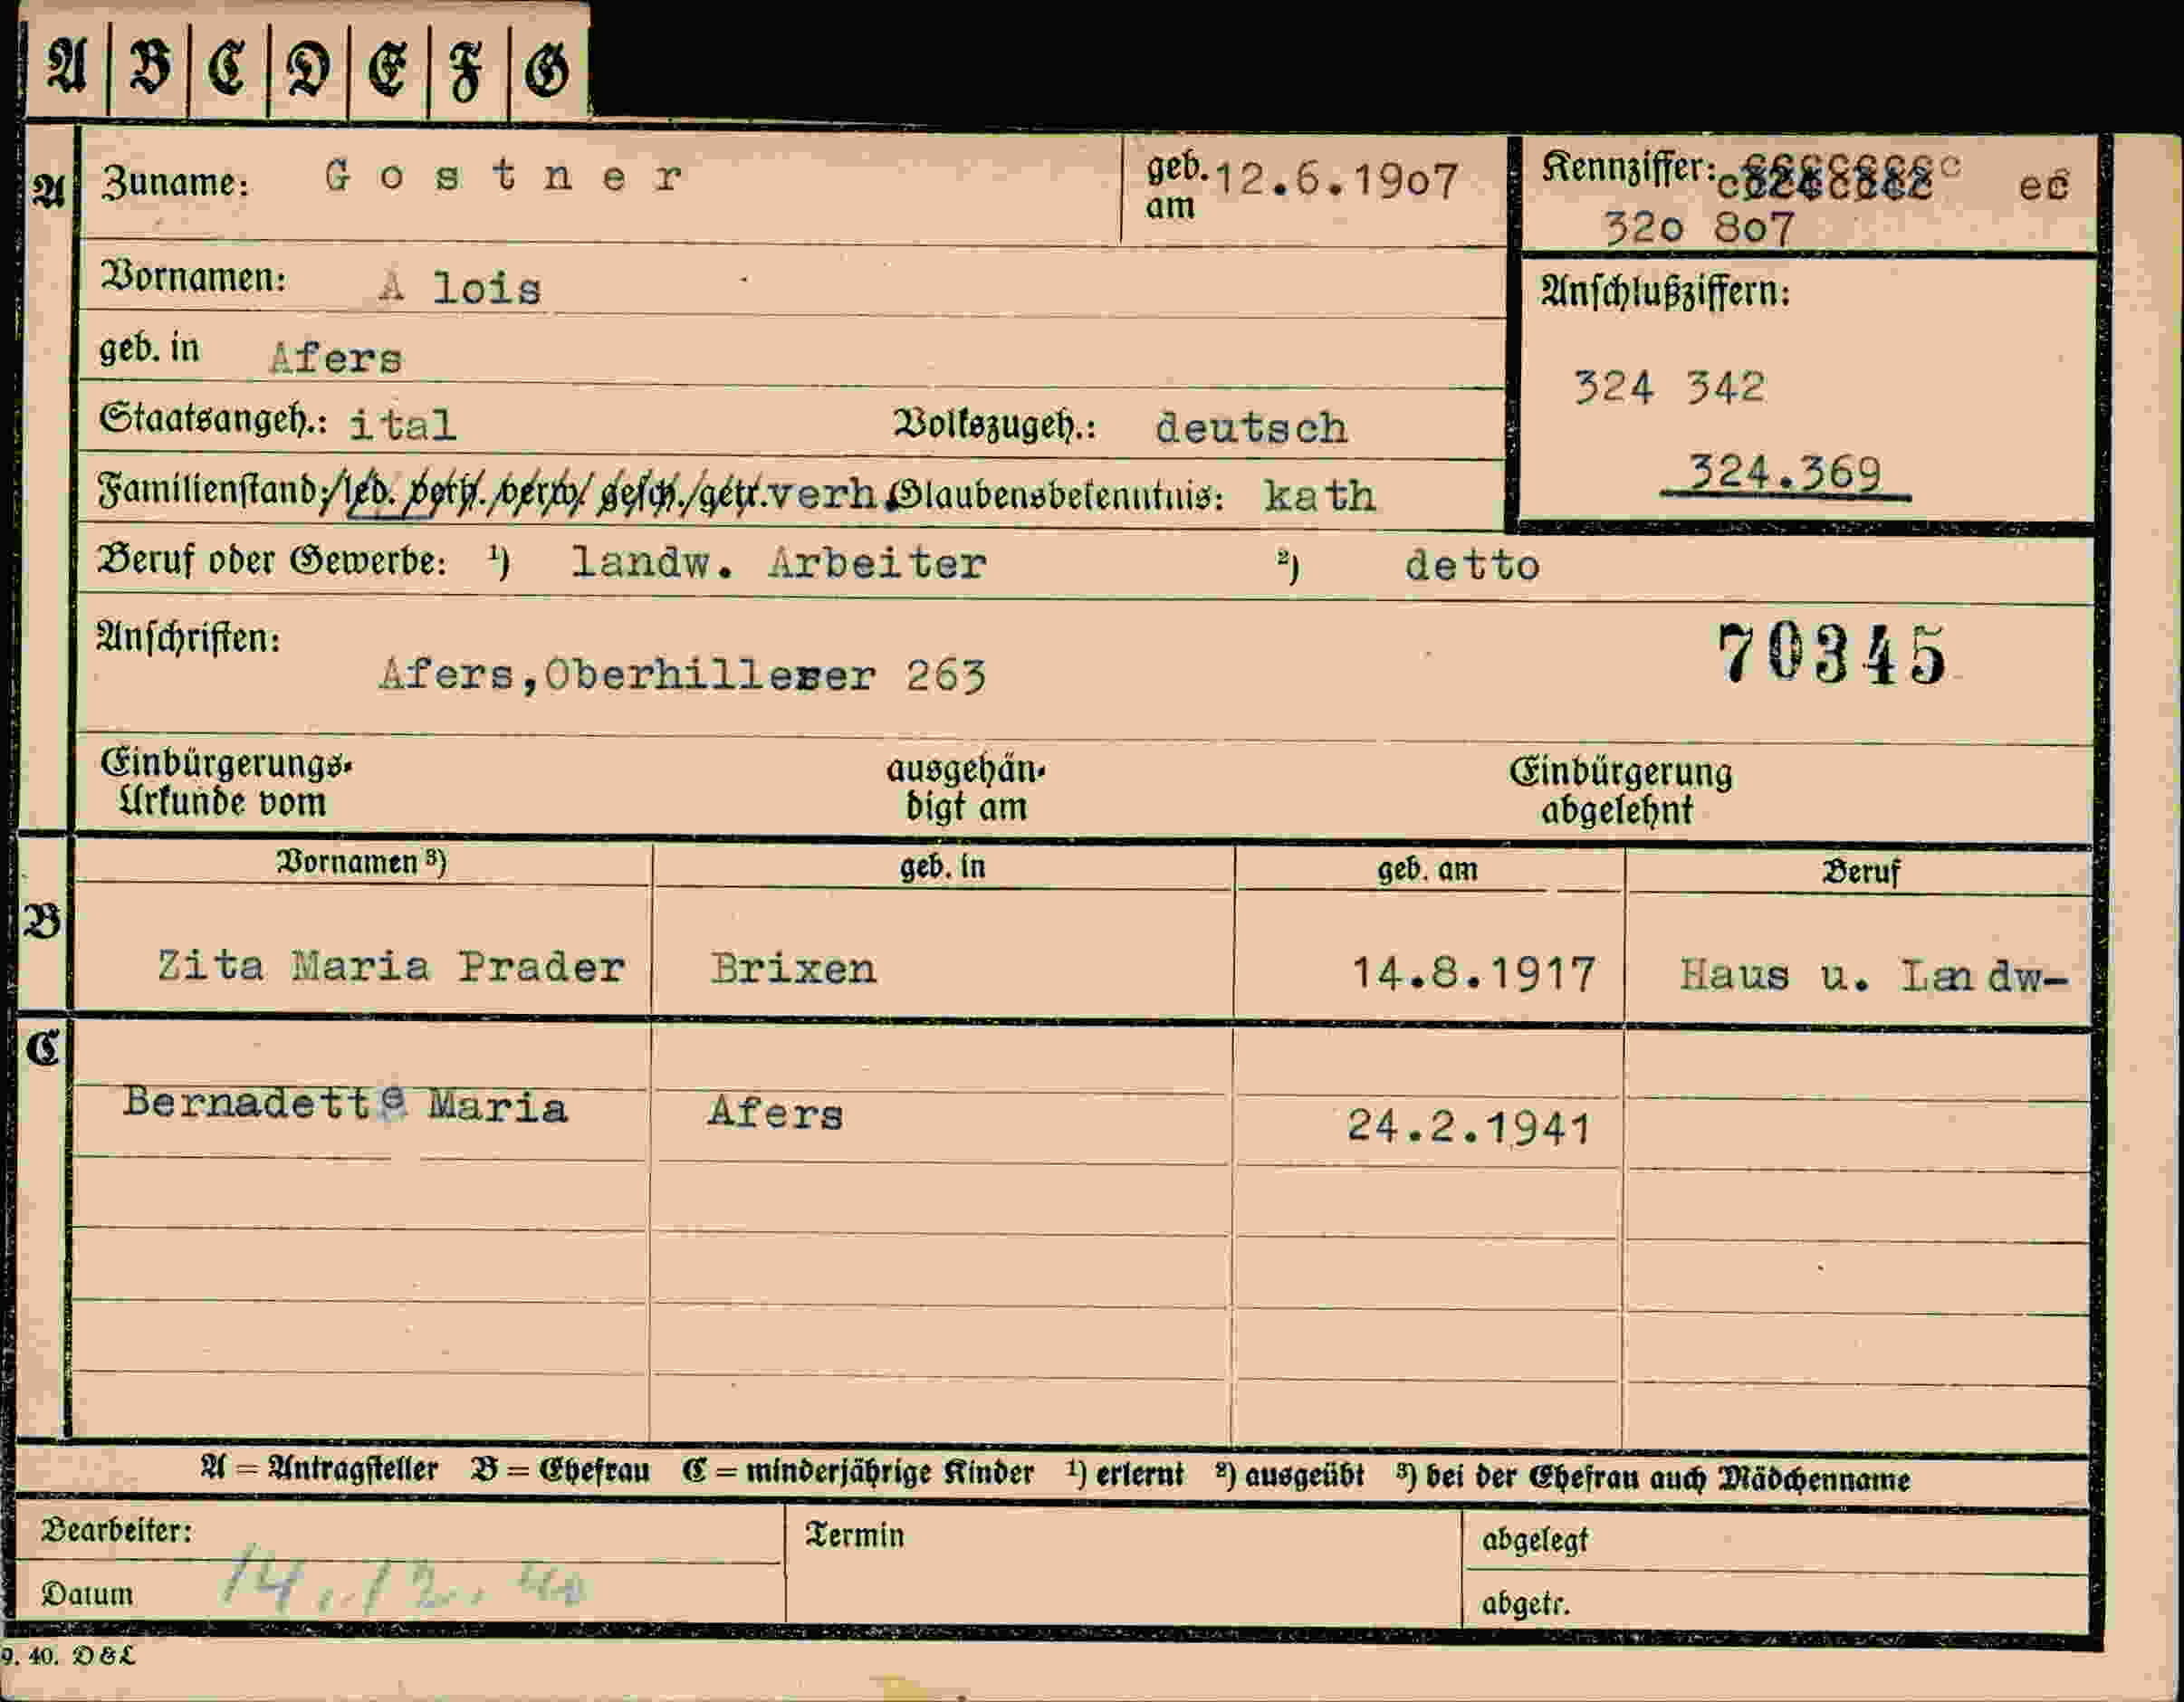 A B C D E F G
A Zuname: Gostner geb. am 12.6.19o7 Kennziffer: ec
32o 8o7
Vornamen: A lois
Anschlußziffern:
geb. in Afers
324 342
Staatsangeh.: ital Volkszugeh.: deutsch
324.369
Familienstand: led. verh. verw. gesch. getr. verh. Glaubensbekenntnis: kath
Beruf oder Gewerbe: ¹) landw. Arbeiter ²) detto
Anschriften:
70345
Afers,Oberhillerer 263
Einbürgerungs-Urkunde vom ausgehän-digt am Einbürgerung abgelehnt
Vornamen ³) geb. in geb. am Beruf
B Zita Maria Prader Brixen 14.8.1917 Haus u. Landw-
C Bernadette Maria Afers 24.2.1941
A = Antragsteller B = Ehefrau C = minderjährige Kinder ¹) erlernt ²) ausgeübt ³) bei der Ehefrau auch Mädchenname
Bearbeiter: Termin abgelegt
Datum 14.12.40 abgetr.
9. 40. D & L